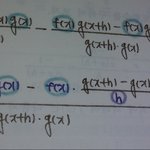 )g(x) - f(x)g(x+h) - f(x)g
g(x+h)·g(x)
f(x) - f(x) · g(x+h) - g(x)
h
g(x+h)·g(x)